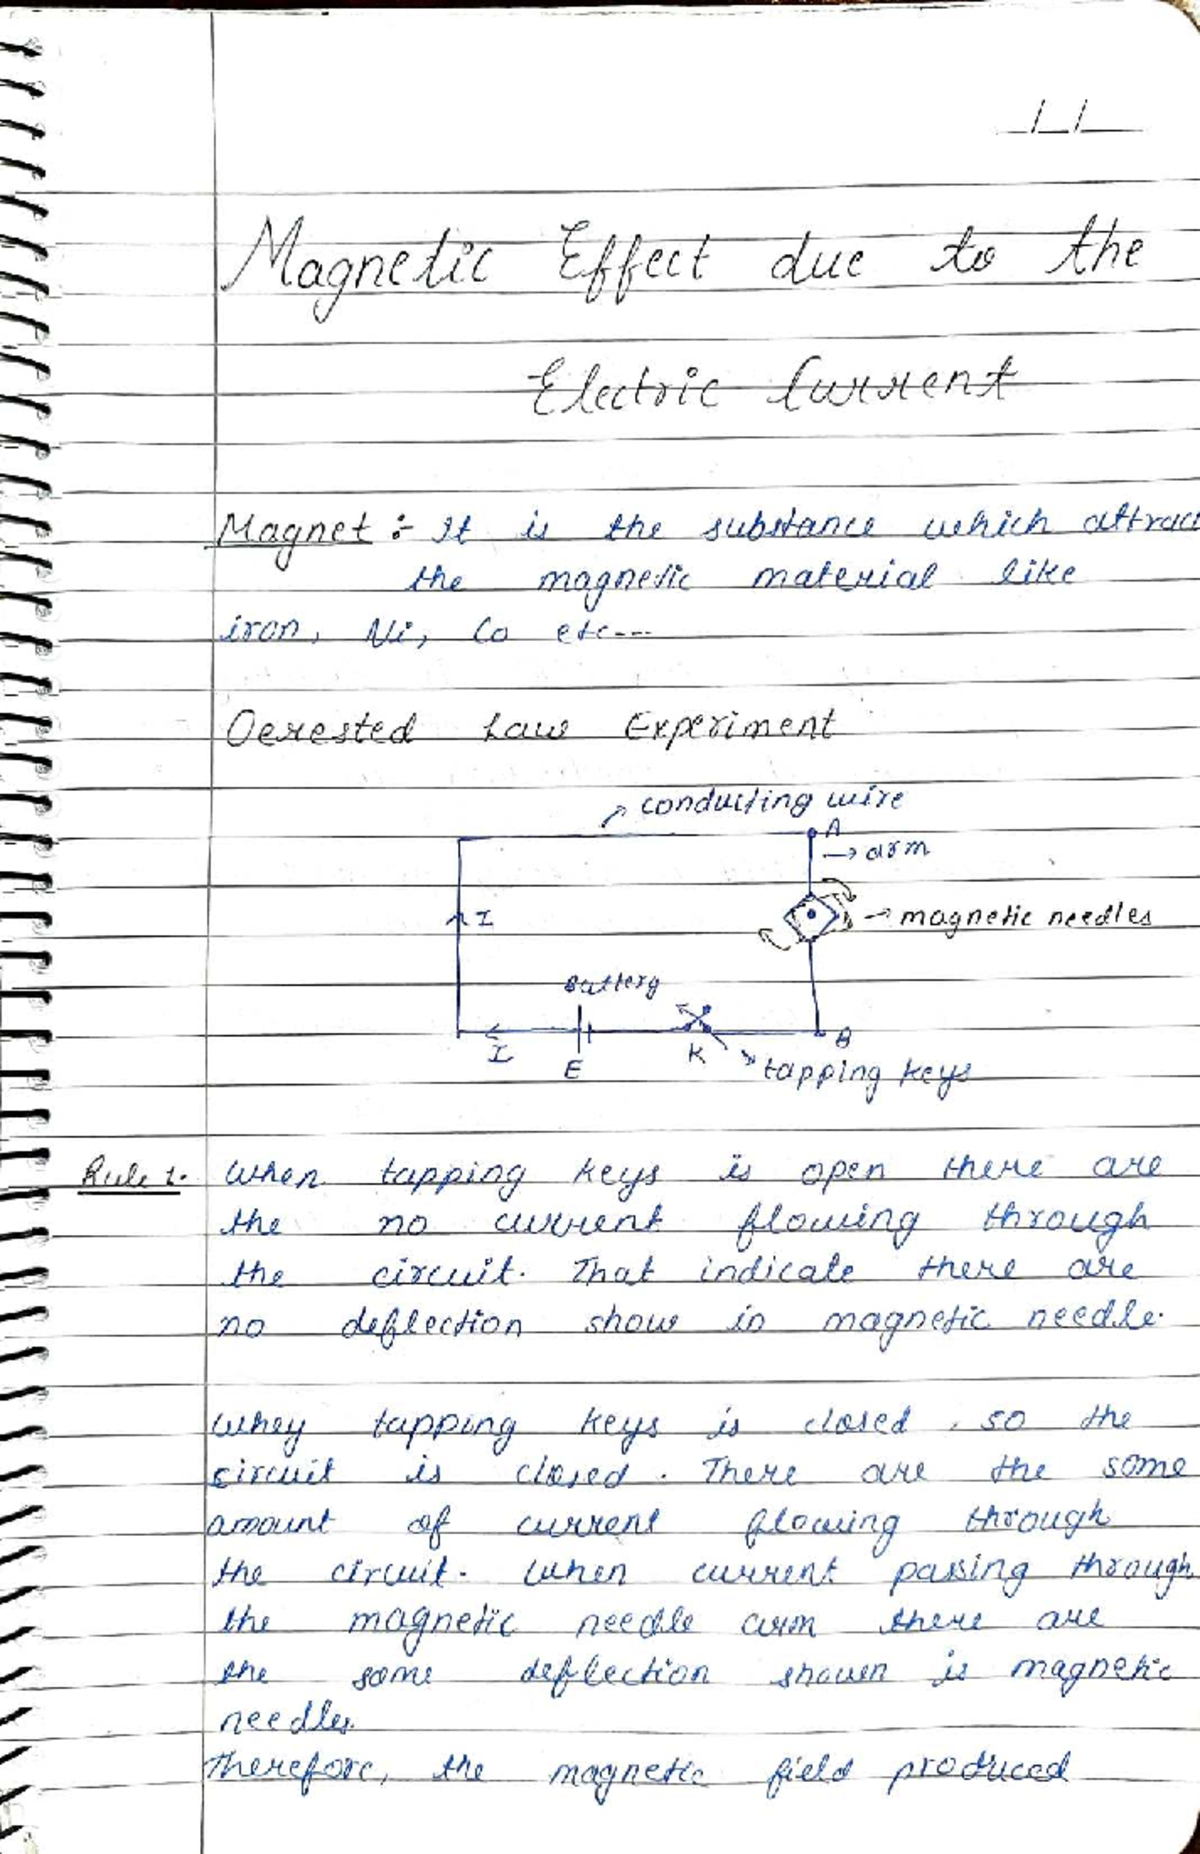 Magnetic Effect due to the
Electric Current
Magnet :- It is the substance which attrac
the magnetic material like
iron, Ni, Co etc---
Oerested Law Experiment
conducting wire
A
arm
I
magnetic needles
Battery
I
E
K
B
tapping keys
Rule 1. When tapping keys is open there are
the no current flowing through
the circuit. That indicate there are
no deflection show in magnetic needle.
Whey tapping keys is closed, so the
circuit is closed. There are the some
amount of current flowing through
the circuit. When current passing through
the magnetic needle arm there are
the some deflection shown is magnetic
needles.
Therefore, the magnetic field produced